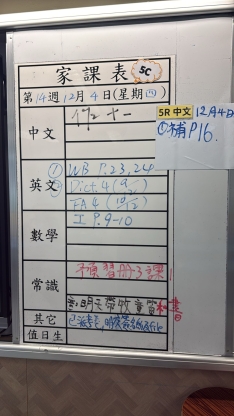 家課表 5C
第14週12月4日(星期四)
中文 作十一
5R 中文 12月4日
①補P16.
英文 ① WB P.23,24
② Dict.4 (9/12)
FA 4 (10/12)
數學 工 P.9-10
常識 預習冊3課
明天帶
其它
值日生